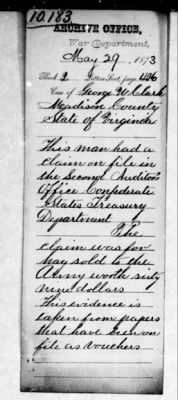 10.183
ARCHIVE OFFICE,
War Department,
May 29, 1873
Book 2 Letters Sent, page 406
Case of George W Clark
Madison County
State of Virginia
This man had a
claim on file in
the Second Auditors
Office Confederate
States Treasury
Department. The
claim was for
hay sold to the
Army worth sixty
nine dollars
This evidence is
taken from papers
that have been on
file as vouchers